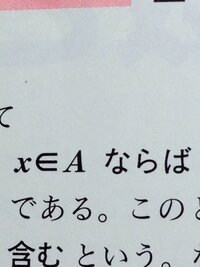 て
x∈A ならば
である。このと
含む という。